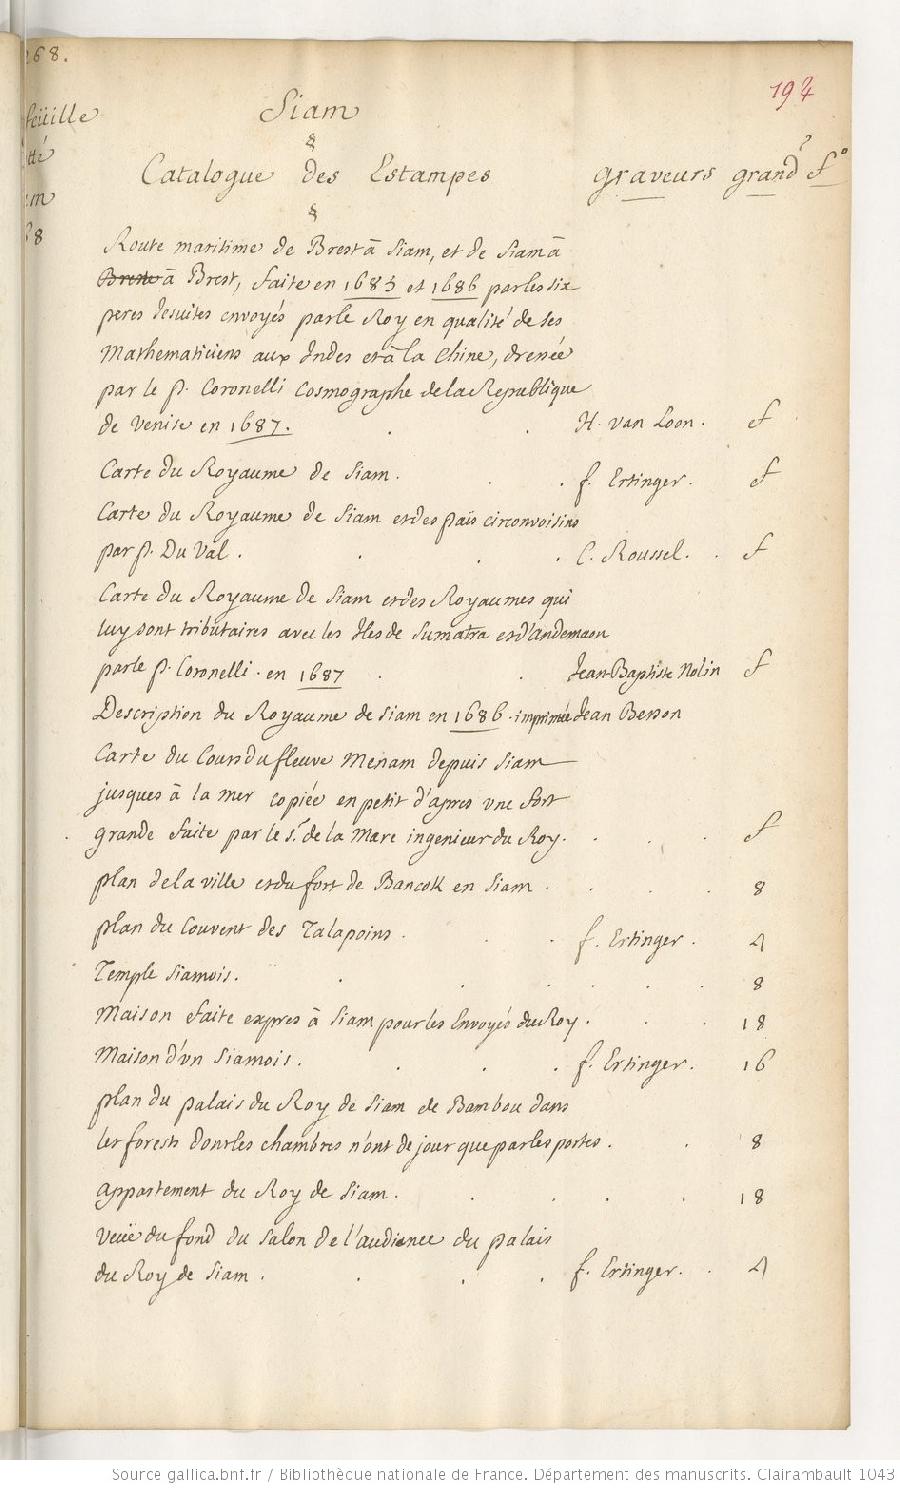 268.
194
feüille
Siam
Catalogue des Estampes graveurs grand fo
Route maritime de Brest à Siam, et de Siam à
Breste à Brest, faite en 1685 et 1686 par les six
peres Jesuites envoyés par le Roy en qualité de ses
Mathematiciens aux Indes et à la Chine, dressée
par le p. Coronelli Cosmographe de la Republique
de Venise en 1687. H. van Loon. f
Carte du Royaume de Siam. f. Ertinger. f
Carte du Royaume de Siam et des païs circonvoisins
par p. Du Val. C. Roussel. f
Carte du Royaume de Siam et des Royaumes qui
luy sont tributaires avec les Iles de Sumatra et d'Andemaon
par le p. Coronelli. en 1687 Jean Baptiste Nolin f
Description du Royaume de Siam en 1686. imprimée Jean Besson
Carte du Cours du fleuve Menam depuis Siam
jusques à la mer copiée en petit d'apres vne fort
grande faite par le Sr. de la Mare ingenieur du Roy. f
plan de la ville et du fort de Bancok en Siam. 8
plan du Couvent des Talapoins. f. Ertinger. 4
Temple Siamois. 8
Maison faite expres à Siam pour les Envoyés du Roy. 18
Maison d'vn Siamois. f. Ertinger. 16
plan du palais du Roy de Siam de Bambou dans
les forests dont les chambres n'ont de jour que par les portes. 8
Appartement du Roy de Siam. 18
Veüe du fond du Salon de l'audience du palais
du Roy de Siam. f. Ertinger. 4
Source gallica.bnf.fr / Bibliothèque nationale de France. Département des manuscrits. Clairambault 1043